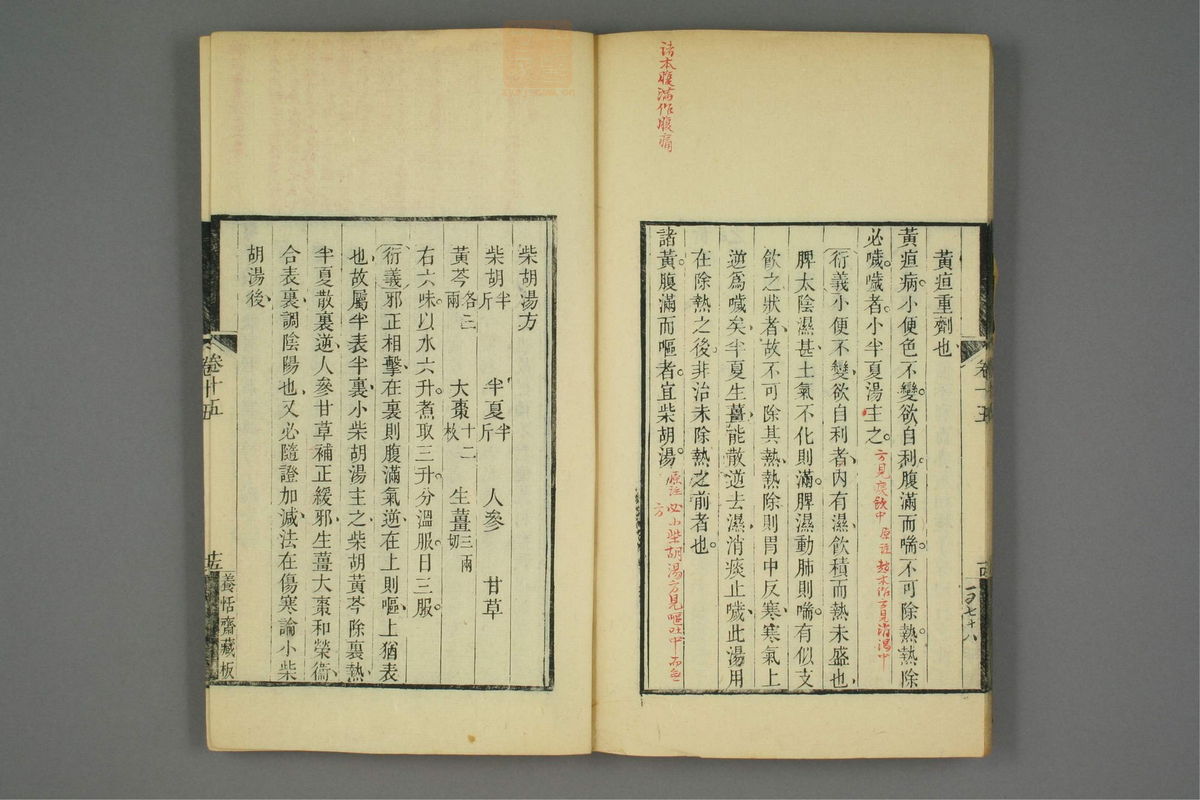 諸本腹滿作腹痛
黃疸重劑也
黃疸病小便色不變欲自利腹滿而喘不可除熱熱除
必噦噦者小半夏湯主之 方見痰飲中
衍義小便不變欲自利者內有濕飲積而熱未盛也
脾太陰濕甚土氣不化則滿脾濕動肺則喘有似支
飲之狀者故不可除其熱熱除則胃中反寒寒氣上
逆為噦矣半夏生薑能散逆去濕消痰止噦此湯用
在除熱之後非治未除熱之前者也
諸黃腹滿而嘔者宜柴胡湯 原註 必小柴胡湯方見嘔吐中
卷十五
柴胡湯方
柴胡半斤 半夏半斤 人參 甘草
黃芩各三兩 大棗十二枚 生薑三兩切
右六味以水六升煮取三升分溫服日三服
衍義邪正相擊在裏則腹滿氣逆在上則嘔上猶表
也故屬半表半裏小柴胡湯主之柴胡黃芩除裏熱
半夏散裏逆人參甘草補正緩邪生薑大棗和榮衛
合表裏調陰陽也又必隨證加減法在傷寒論小柴
胡湯後
卷十五
養恬齋藏板